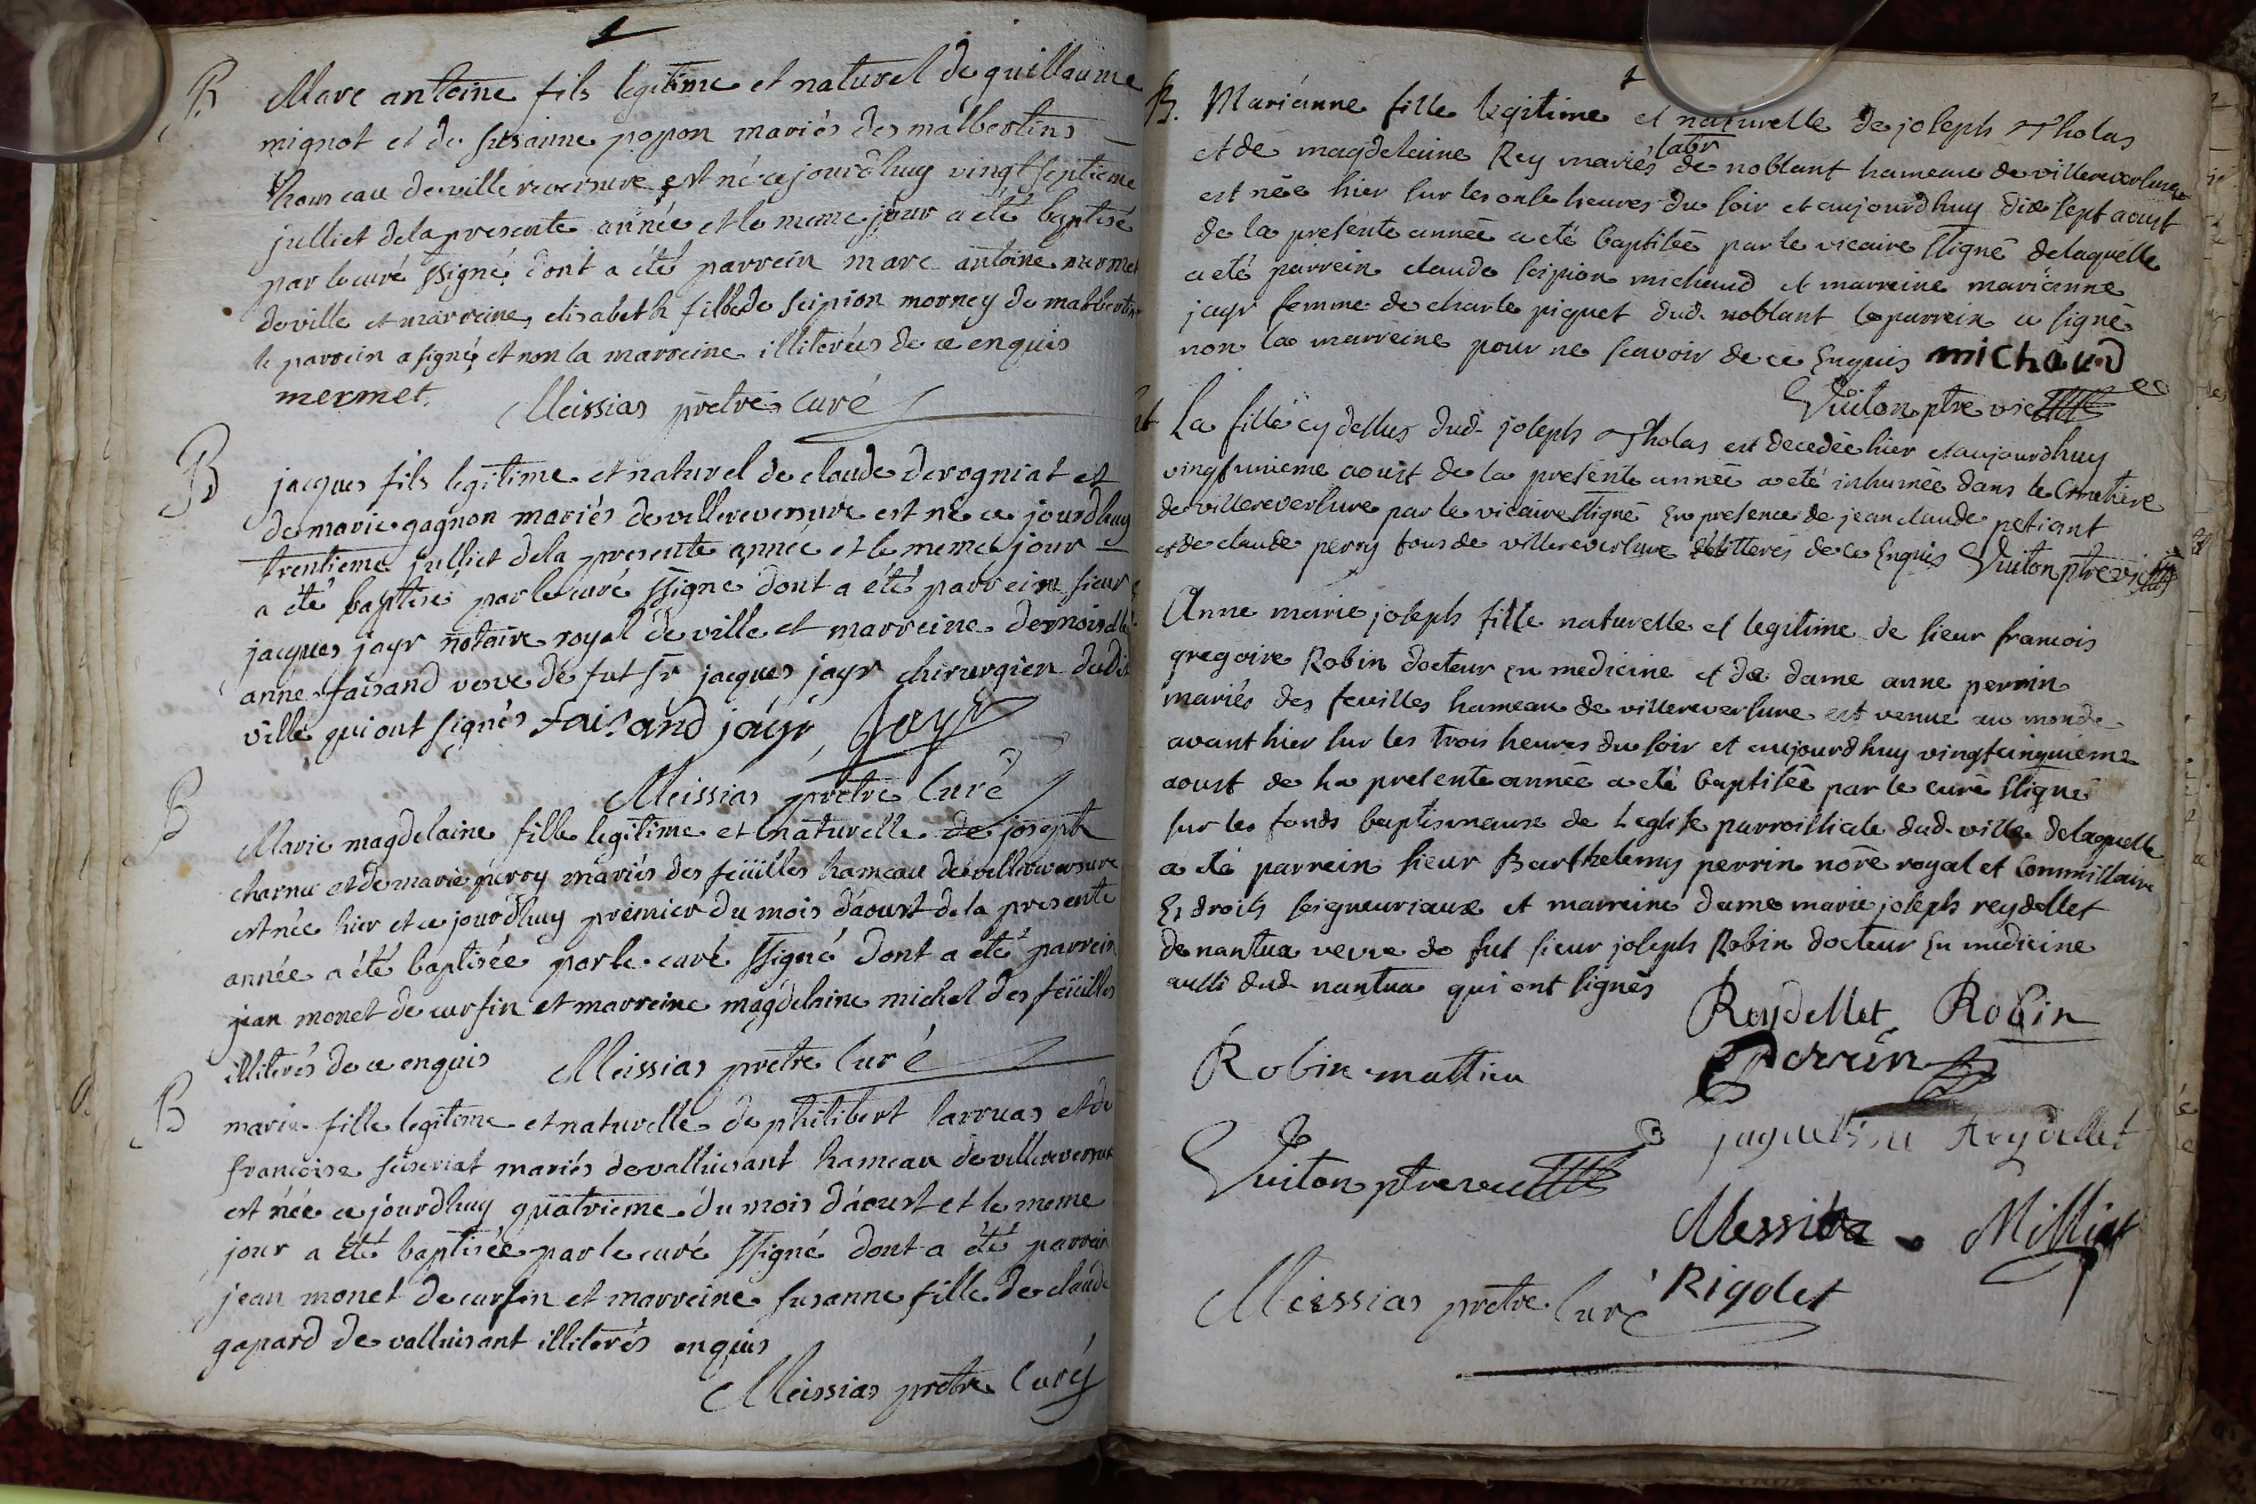 B
Marc antoine fils legitime et naturel de guillaume
mignot et de susanne popon mariés des malbertins
hameau de villereversure est né cejourdhuy vingt septieme
julliet dela presente année et le meme jour a été baptisé
par le curé ssigné dont a été parrein marc antoine mermet
deville et marreine elisabeth fille de scipion morney de malbertin
le parrein a signé et non la marreine illiterées de ce enquis
mermet. Meissias prêtre curé
B
jacques fils legitime et naturel de claude derogniat et
de marie gagnon mariés de villereversure est né ce jourdhuy
trentieme julliet dela presente année et le meme jour
a été baptisé par le curé ssigne dont a été parrein sieur
jacques jayr notaire royal de ville et marreine demoiselle
anne faisand veve de fut sr jacques jayr chirurgien dudit
ville qui ont signés faisand jayr Jayr
Meissias prêtre Curé
B
Marie magdelaine fille legitime et naturelle de joseph
charnu et de marie perroy mariés des feüilles hameau de villereversure
est née hier et ce jourdhuy premier du mois d'aoust dela presente
année a été baptisée par le curé ssigné dont a été parrein
jean monet de cursin et marreine magdelaine michel des feüilles
illiterés de ce enquis Meissias prêtre Curé
B
marie fille legitime et naturelle de philibert larruas et de
francoise suseriat mariés devalluisant hameau de villereversure
est née ce jourdhuy quatrieme du mois d'aoust et le meme
jour a été baptisée par le curé ssigné dont a été parrein
jean monet de cursin et marreine susanne fille de claude
gapard de valluisant illiterés enquis
Meissias prêtre Curé
B. Marianne fille legitime et naturelle de joseph Tholas
labr
et de magdelaine Rey mariés de noblant hameau de villereversure
est née hier sur les onse heures du soir et aujourdhuy dix sept aoust
de la presente année a eté baptisée par le vicaire ssigné delaquelle
a eté parrein claude scipion michaud et marreine marianne
jayr femme de charle piquet dud. noblant le parrein a signé
non la marreine pour ne scavoir de ce Enquis michaud
Vuiton ptre vic
La fille cy dessus dud. joseph Tholas est decedée hier et aujourdhuy
vingtunieme aoust de la presente année a eté inhumée dans le Cimetiere
de villereversure par le vicaire ssigné En presence de jean claude petiant
et de claude perry tous de villereversure illitterés de ce Enquis Vuiton ptre vic
Anne marie joseph fille naturelle et legitime de sieur francois
gregoire Robin docteur en medicine et de dame anne perrin
mariés des feuilles hameau de villereversure est venue au monde
avant hier sur les trois heures du soir et aujourdhuy vingtcinquieme
aoust de la presente année a eté baptisée par le curé ssigné
sur les fonds baptismeaux de L'eglise parroissiale dud. ville delaquelle
a eté parrein sieur Barthelemy perrin nore royal et Commissaire
En droits seigneuriaux et marreine dame marie joseph reydellet
de nantua veuve de fut sieur joseph Robin docteur En medicine
aussi dud. nantua qui ont signés
Reydellet Robin
Robin mattieu Perrin
Reydellet
Vuiton ptre vic
Messiba Milliat
Meissias prêtre Curé Rigolet